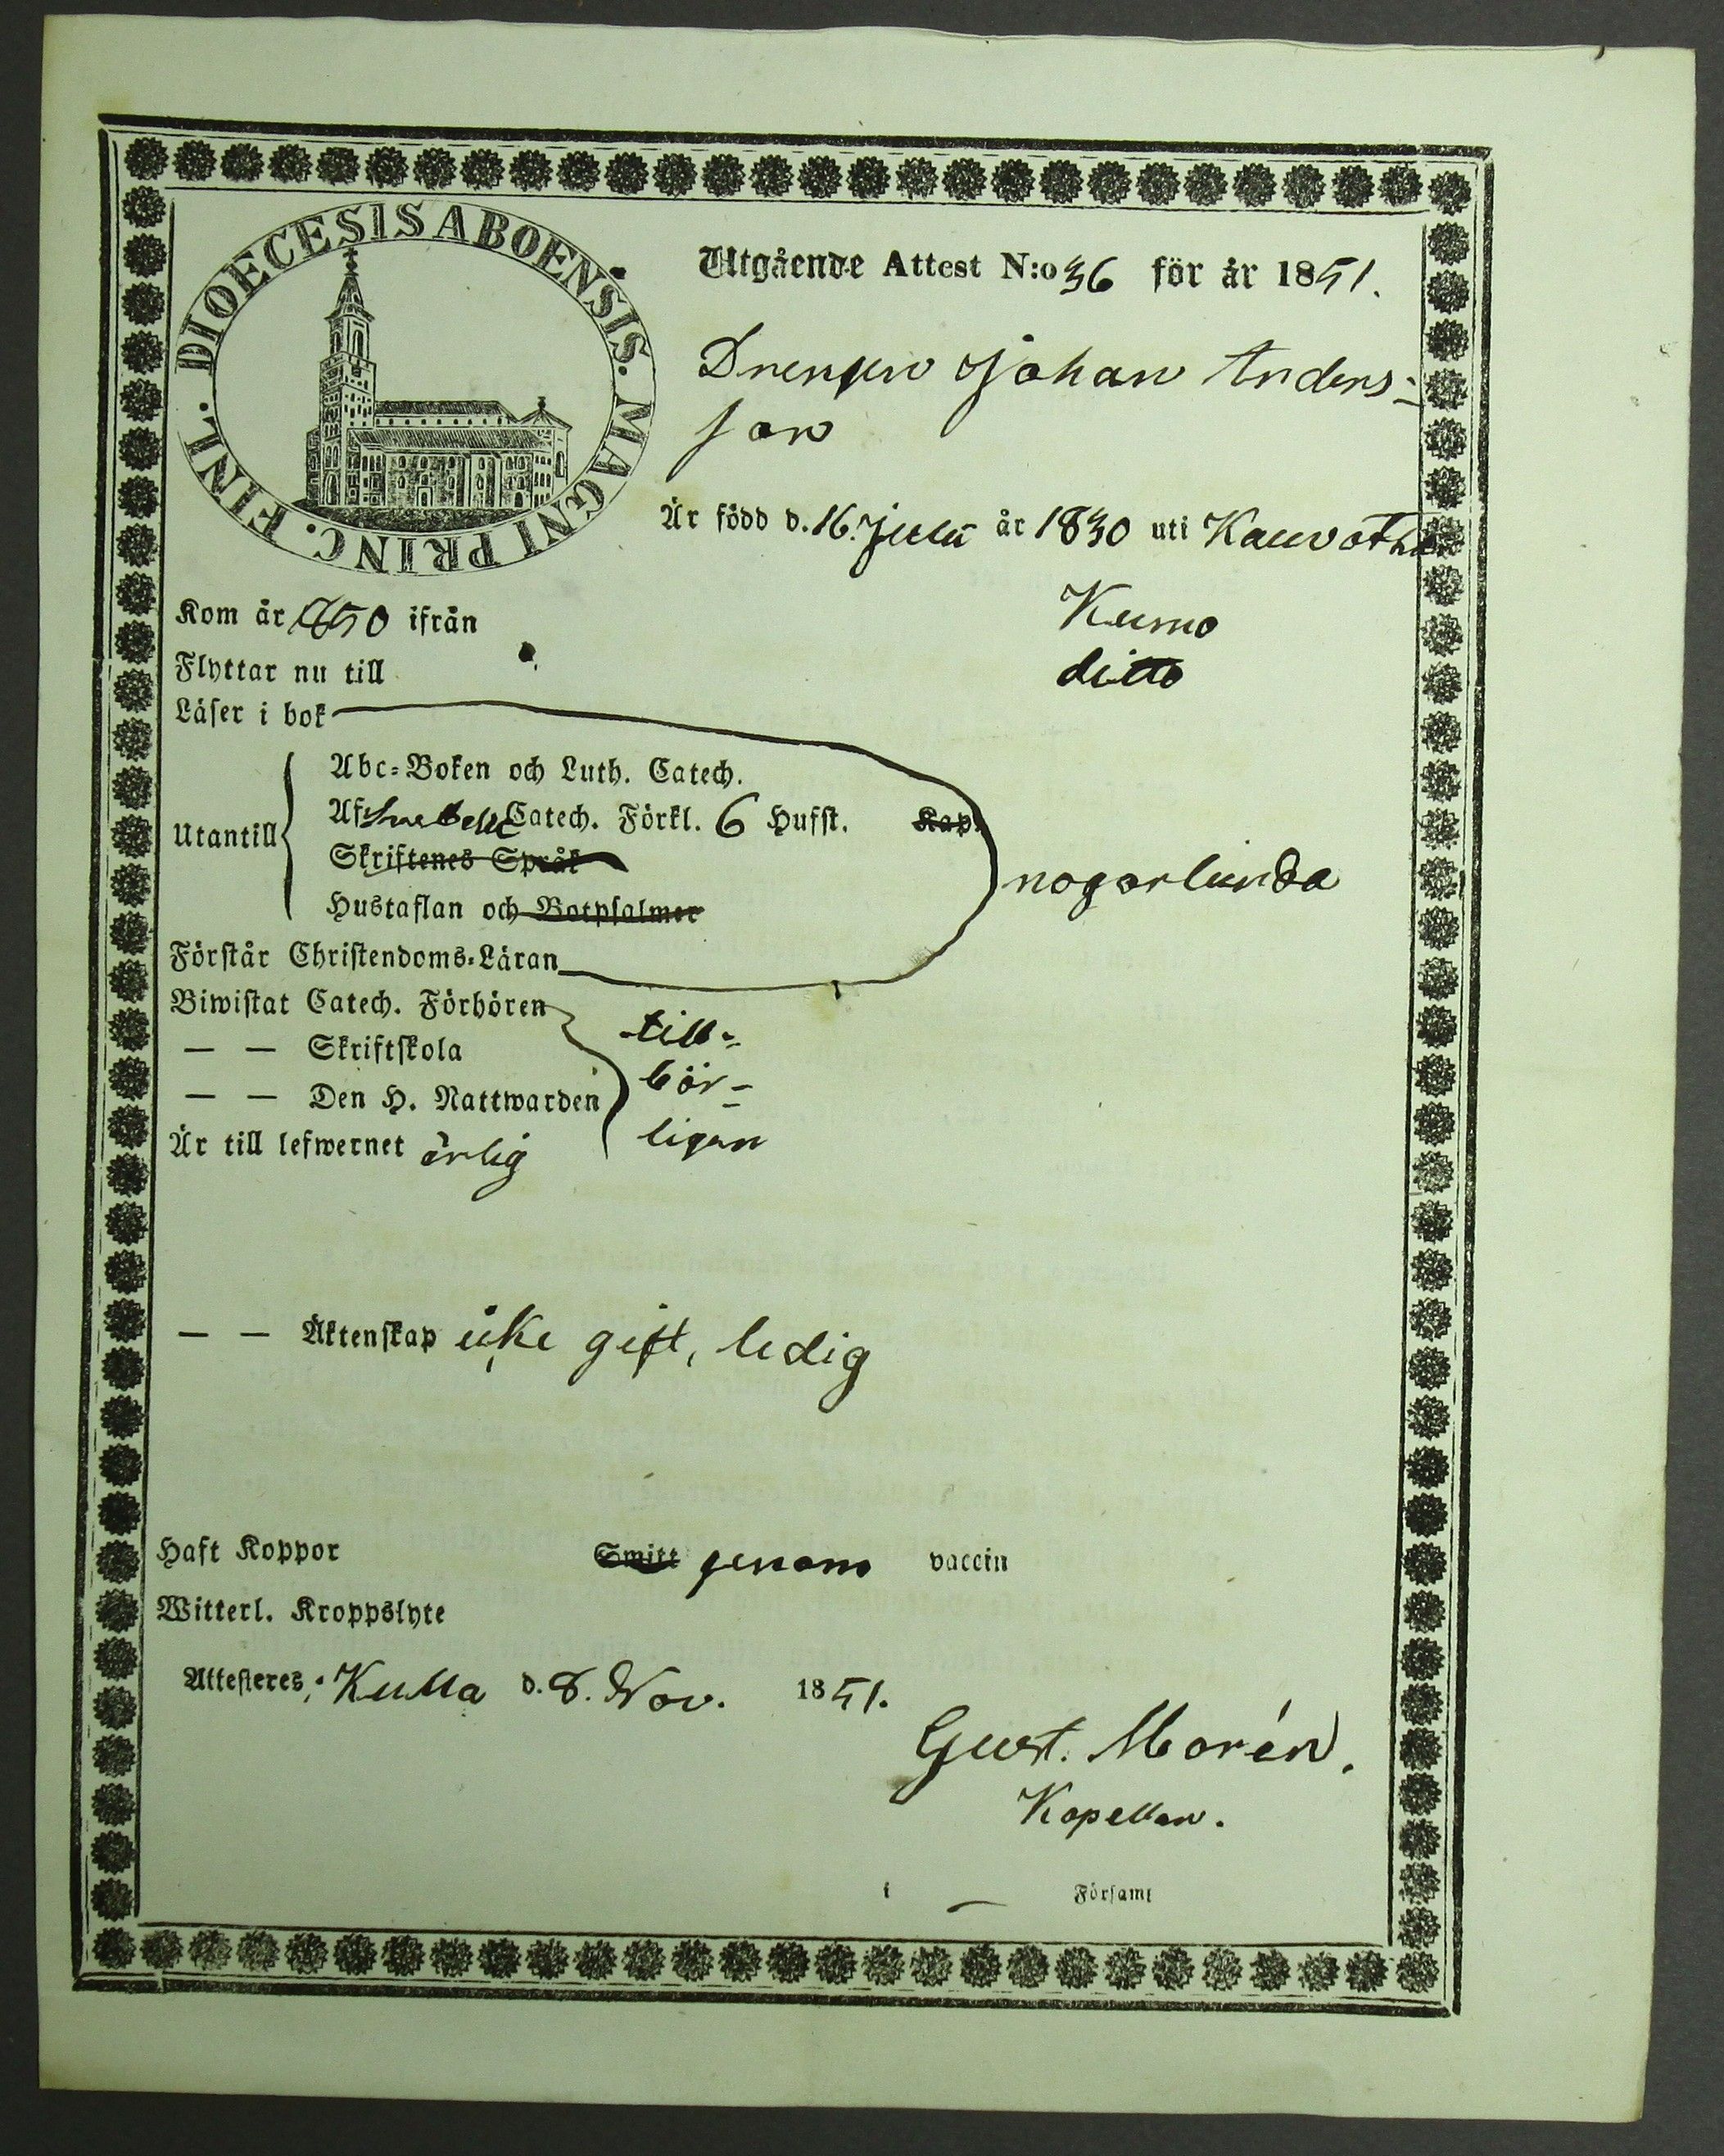 DIOECESIS ABOENSIS. MAGNI PRINC. FINL.
Utgående Attest N:o 36 för år 1851.
Drengen Johan Anders-
son
Är född d. 16. Julii år 1830 uti Kauvatsa
Kom år 1850 ifrån Kumo
Flyttar nu till ditto
Läser i bok
Utantill
Abc-Boken och Luth. Catech.
Af Svebelii Catech. Förkl. 6 Hufst. Kap.
Skriftenes Språk
Hustaflan och Botpsalmer
nogorlunda
Förstår Christendoms-Läran
Biwistat Catech. Förhören till-
— — Skriftskola bör-
— — Den H. Nattwarden ligen
Är till lefwernet ärlig
— — Äktenskap icke gift, ledig
Haft Koppor Smitt genom vaccin
Witterl. Kroppslyte
Attesteres; Kulla d. 8. Nov. 1851.
Gust. Morén.
Kapellan.
i — Församl